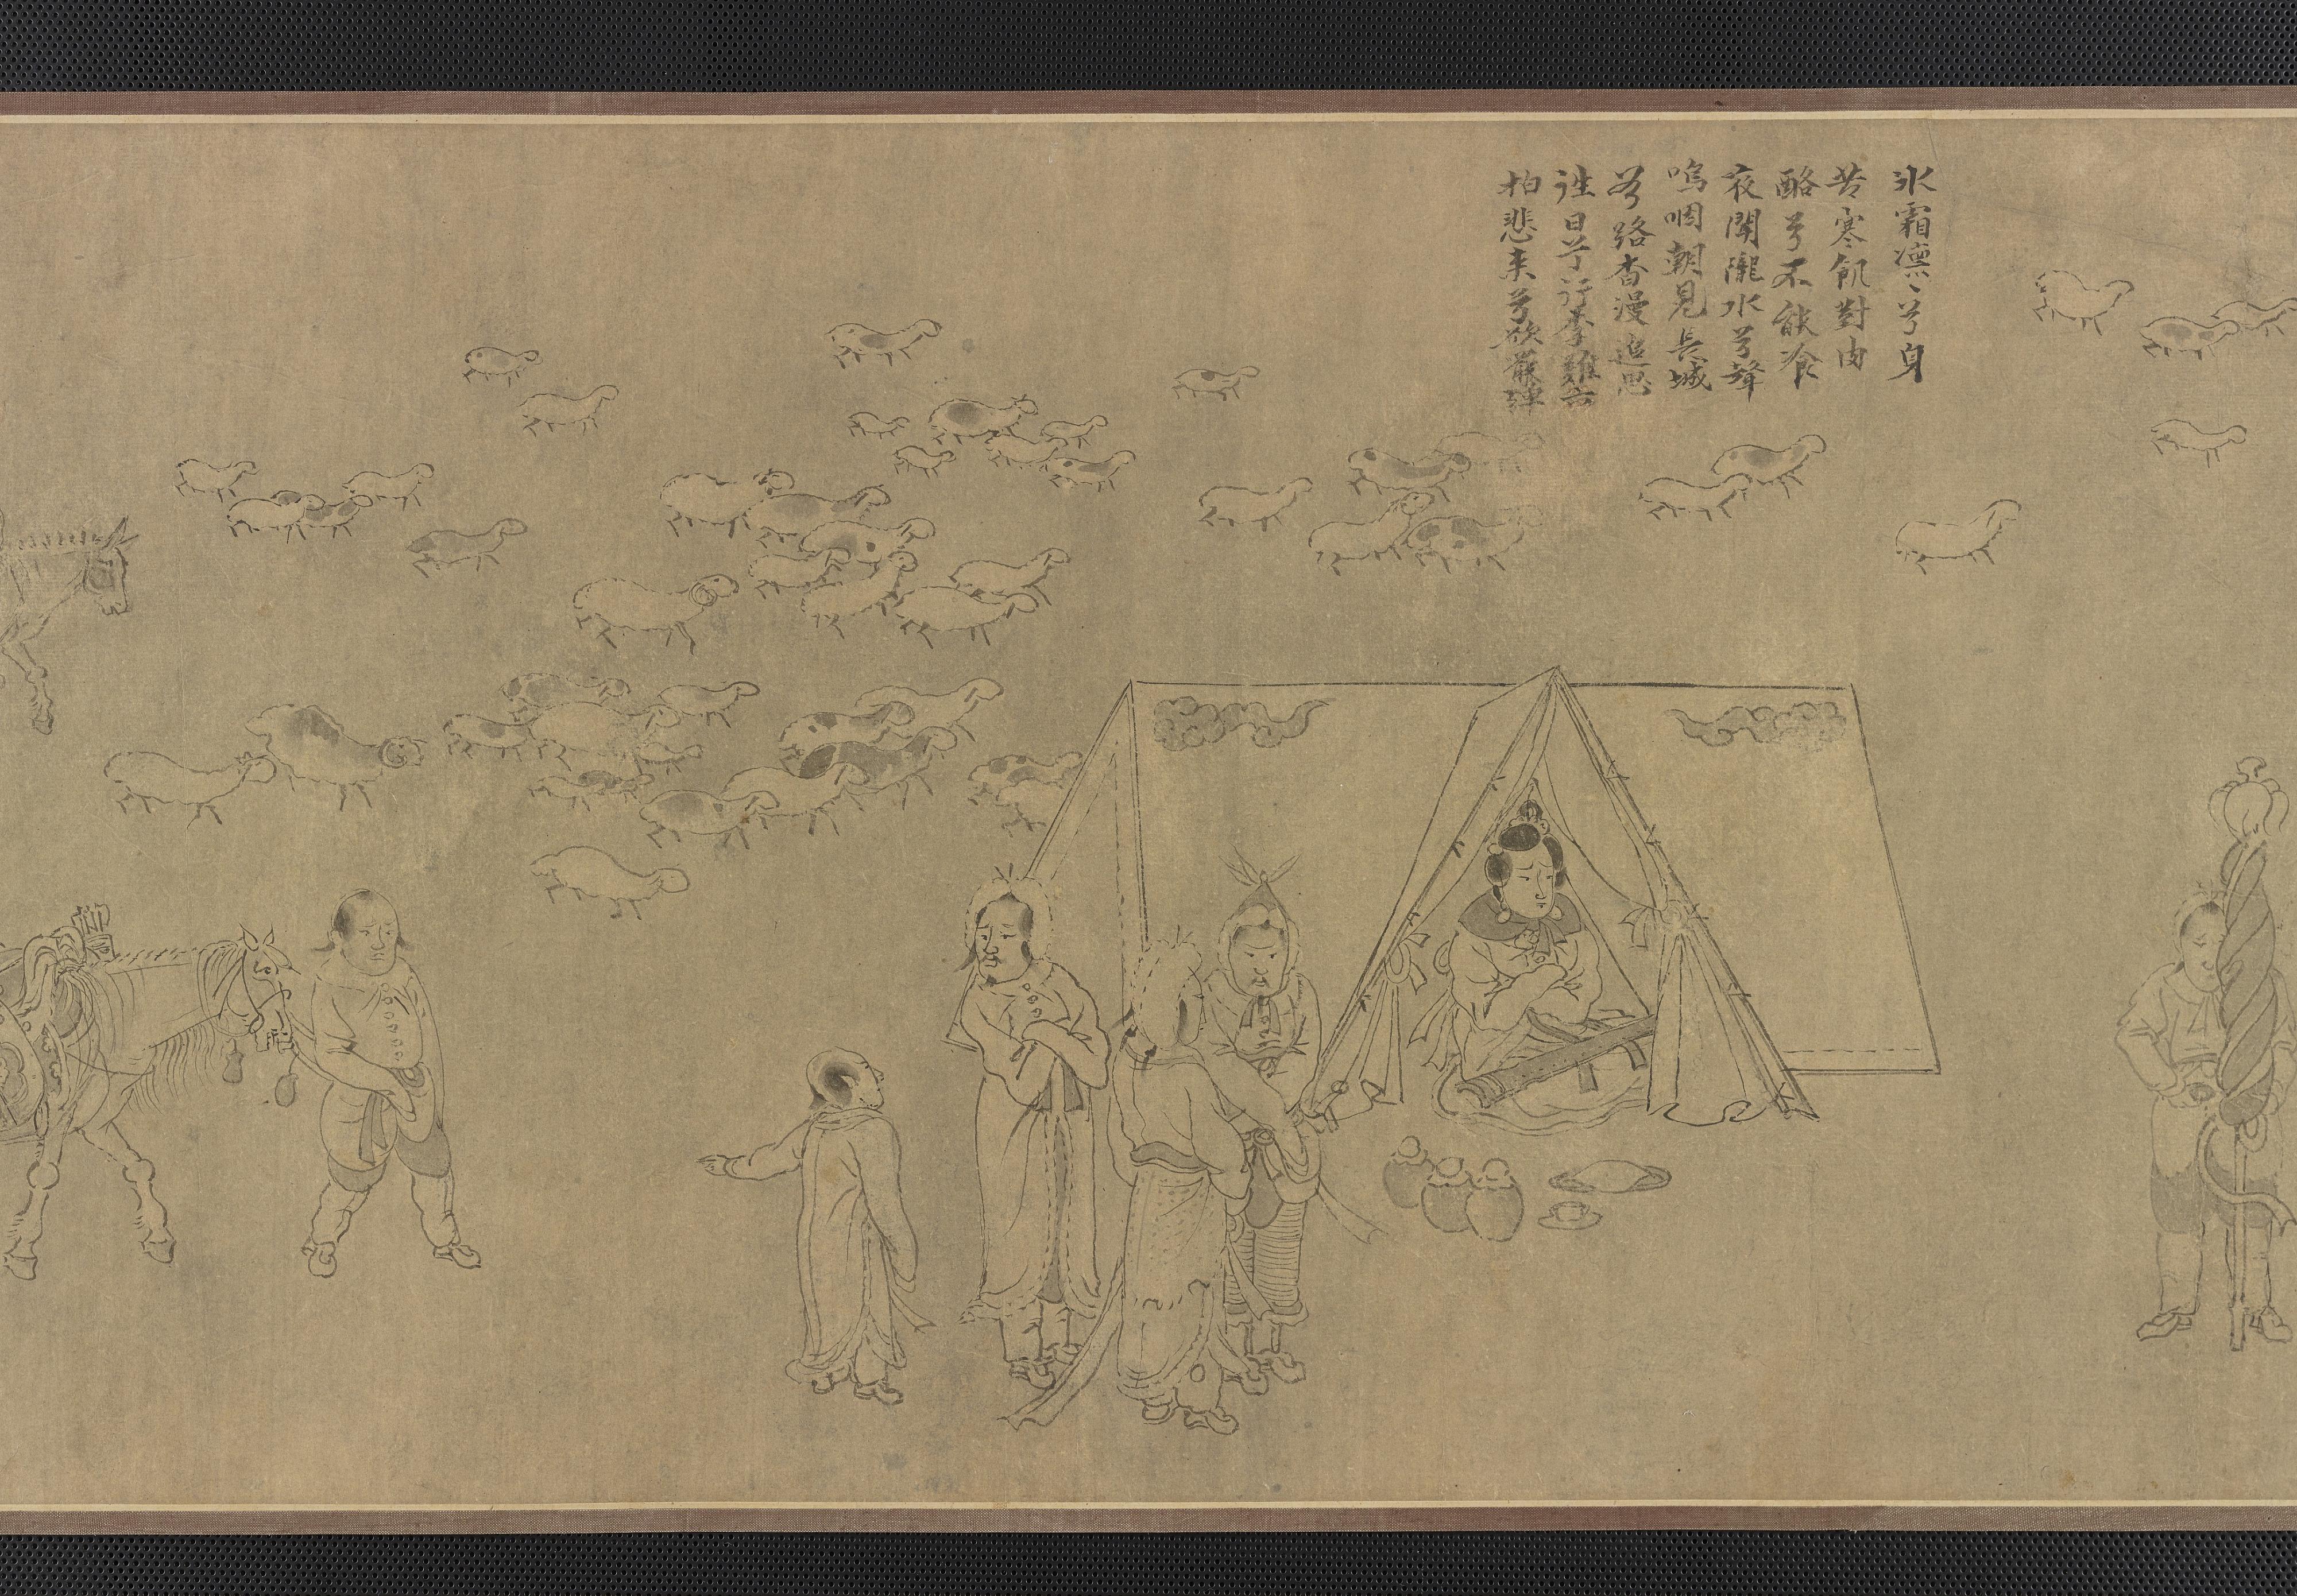 氷霜凛〻兮身
苦寒飢對肉
酪兮不能飡
夜聞隴水兮聲
嗚咽朝見長城
兮路杳漫追思
往日兮行李難六
拍悲来兮欲罷彈